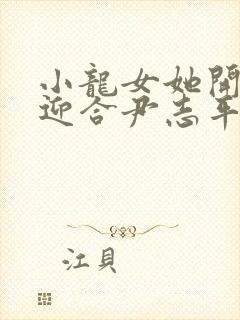 小龍女她開
迎合尹志平
江貝